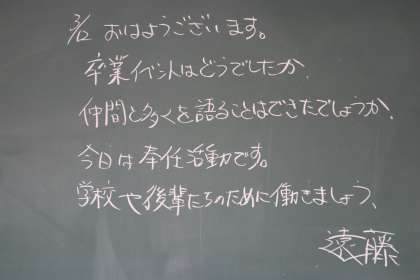 3/2 おはようございます。
卒業イベントはどうでしたか。
仲間と多くを語ることはできたでしょうか。
今日は奉仕活動です。
学校や後輩たちのために働きましょう、
遠藤